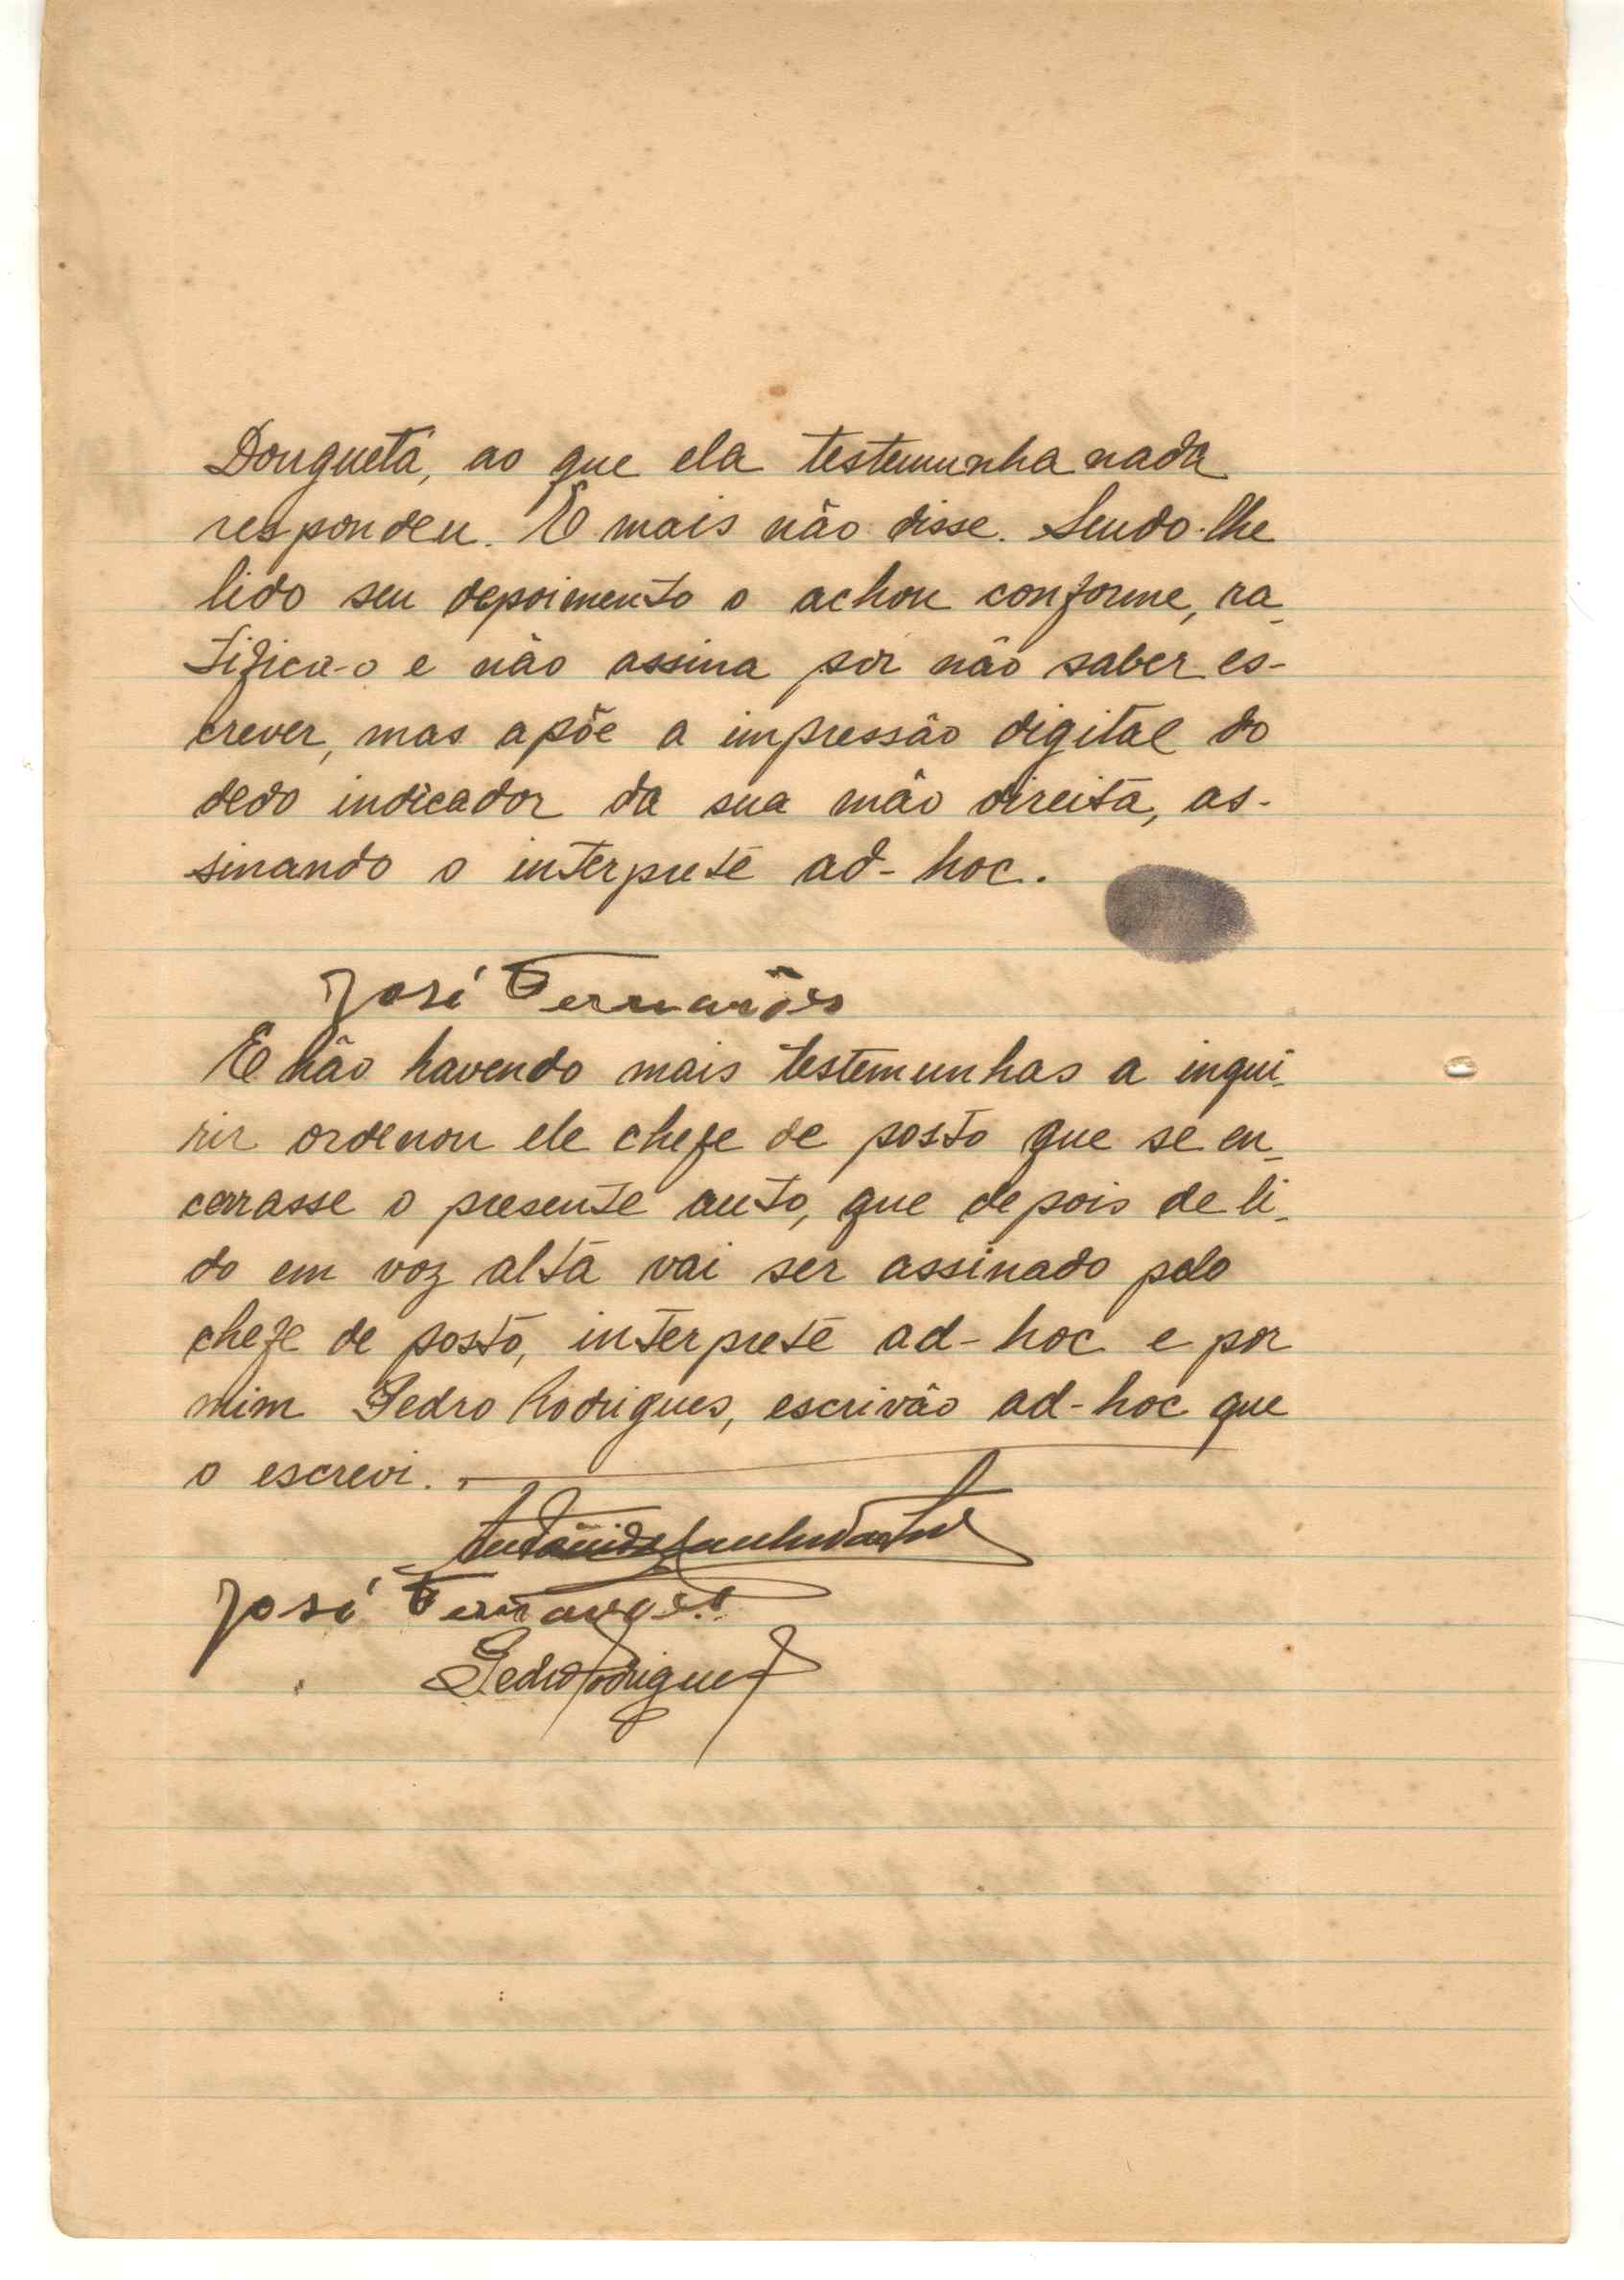 Dougueta, ao que ela testemunha nada
respondeu. E mais não disse. Sendo-lhe
lido seu depoimento o achou conforme, ra-
tifica-o e não assina por não saber es-
crever, mas apõe a impressão digital do
dedo indicador da sua mão direita, as-
sinando o interprete ad-hoc.
José Fernandes
E não havendo mais testemunhas a inqui-
rir ordenou ele chefe de posto que se en-
cerrasse o presente auto, que depois de li-
do em voz alta vai ser assinado pelo
chefe de posto, interprete ad-hoc e por
mim Pedro Rodrigues, escrivão ad-hoc que
o escrevi.
José Fernandes
Pedro Rodrigues